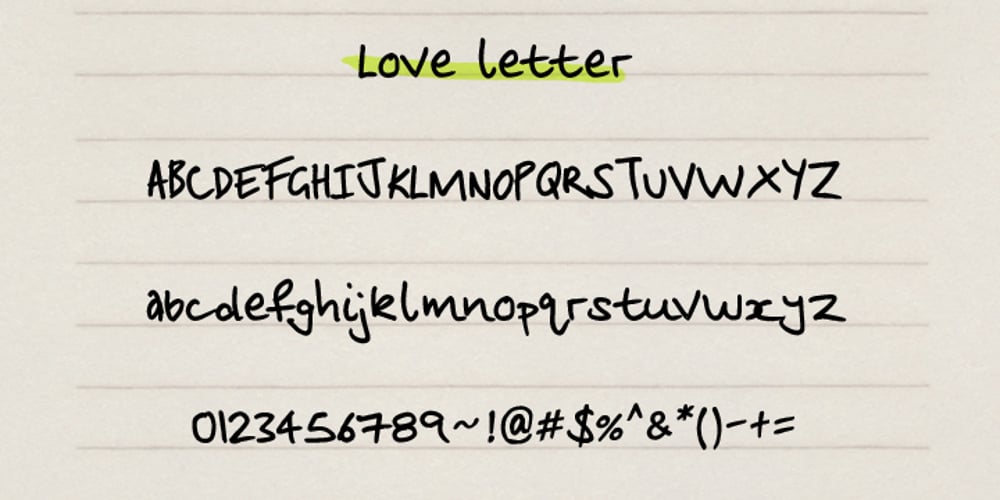 Love letter
ABCDEFGHIJKLMNOPQRSTUVWXYZ
abcdefghijklmnopqrstuvwxyz
0123456789~!@#$%^&*()-+=